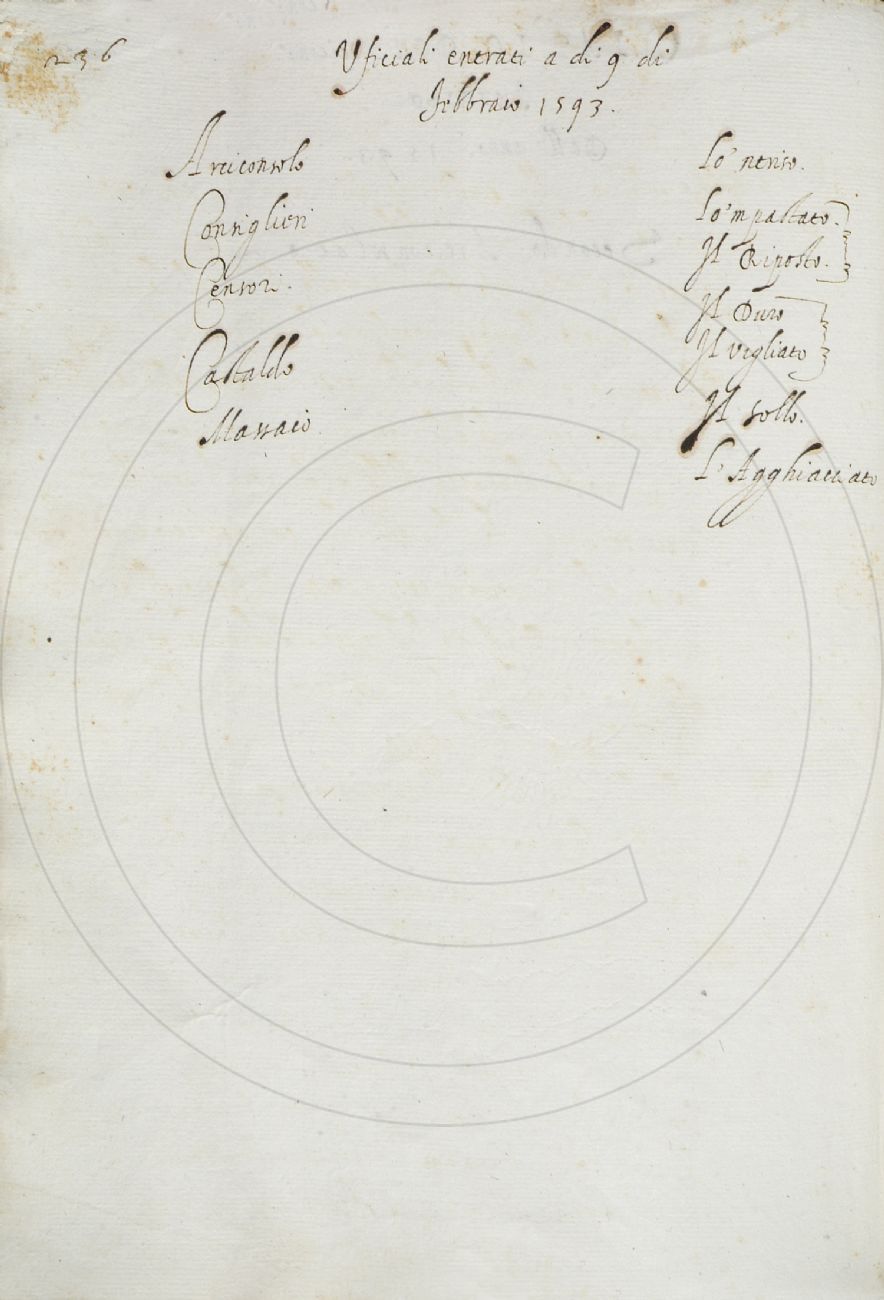 236
Uficiali entrati a di 9 di
febbraio. 1593.
Arciconsolo Lo 'nteriso.
Consiglieri Lo 'mpastato.
Il Riposto.
Censori. Il Duro
Il vegliato
Castaldo Il sollo.
Massaio L'Agghiacciato